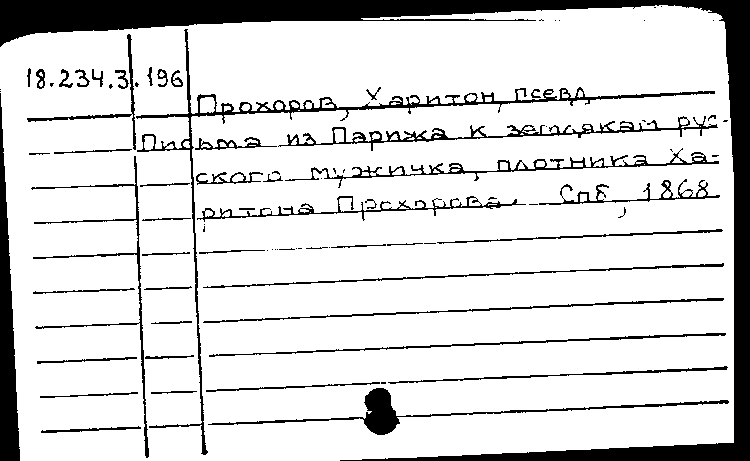 18.234.3.196
Прохоров, Харитон, псевд.
Письма из Парижа к землякам рус-
ского мужичка, плотника Ха-
ритона Прохорова. Спб, 1868